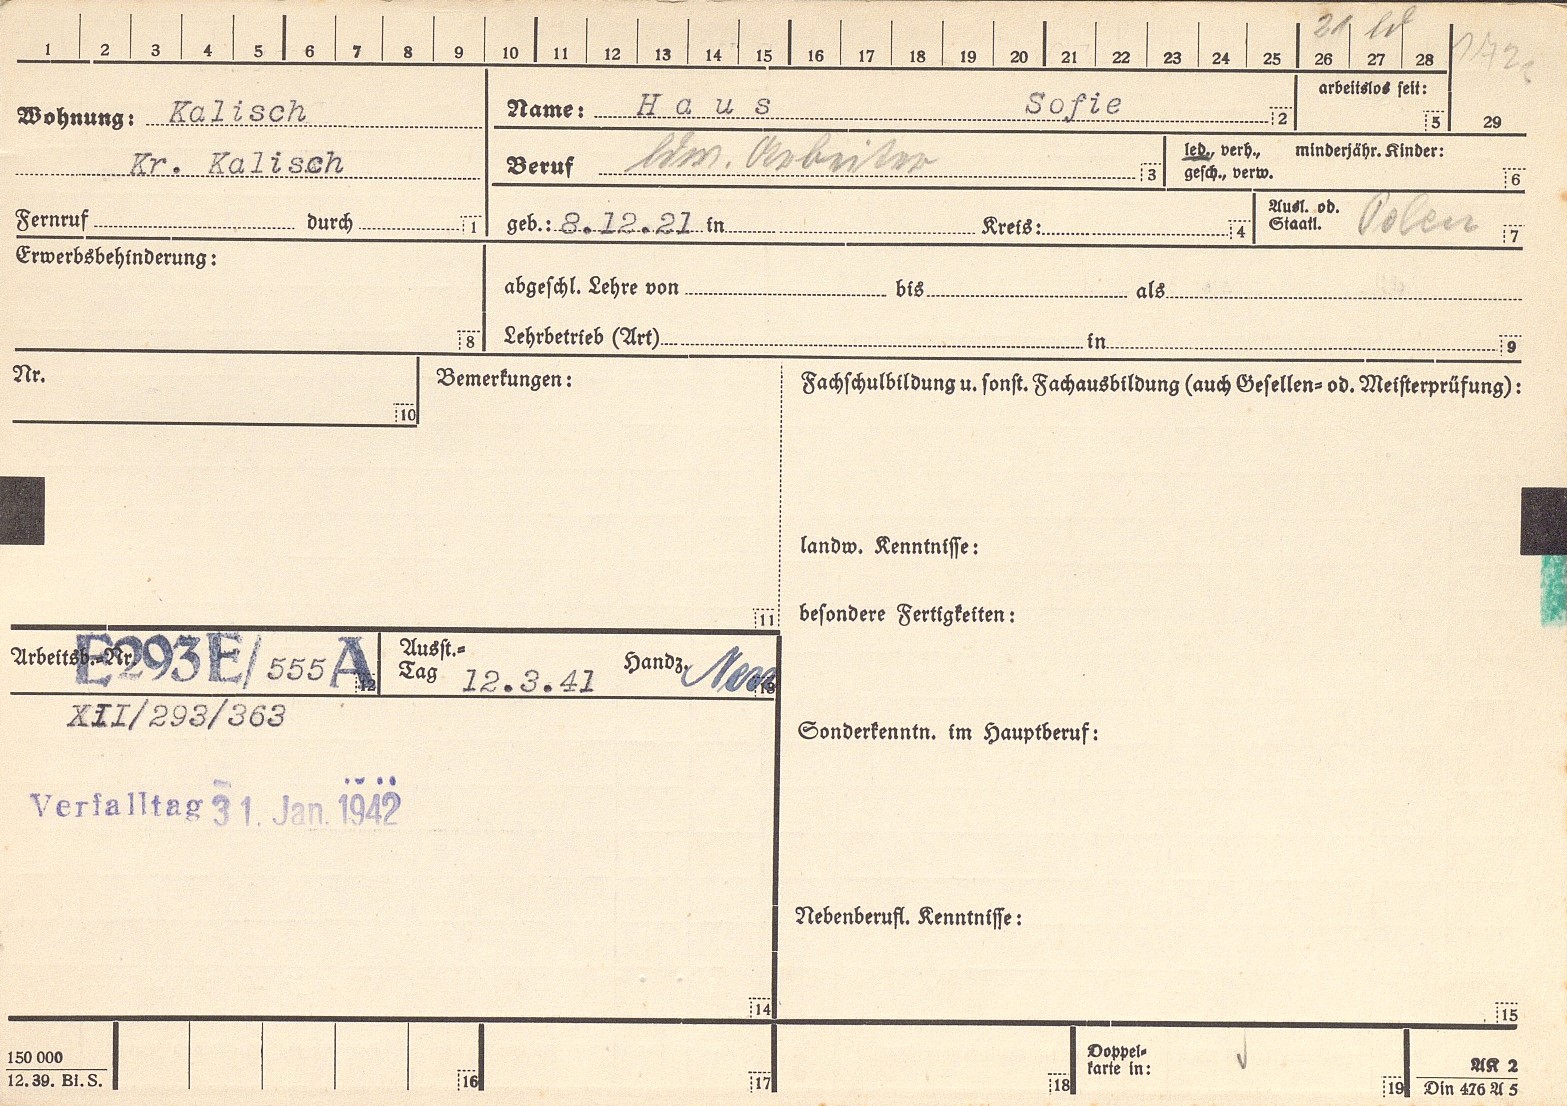 21 ld
1 2 3 4 5 6 7 8 9 10 11 12 13 14 15 16 17 18 19 20 21 22 23 24 25 26 27 28
29
Wohnung: Kalisch
Kr. Kalisch
Fernruf durch 1
Name: Haus Sofie 2
arbeitslos seit: 5
Beruf ldw. Arbeiter 3
led., verh., minderjähr. Kinder:
gesch., verw. 6
geb.: 8.12.21 in Kreis: 4
Ausl. od.
Staatl. Polen 7
Erwerbsbehinderung: 8
abgeschl. Lehre von bis als
Lehrbetrieb (Art) in 9
Nr. 10
Bemerkungen: 11
Fachschulbildung u. sonst. Fachausbildung (auch Gesellen- od. Meisterprüfung):
landw. Kenntnisse:
besondere Fertigkeiten:
Arbeitsb.-Nr. E293E/555 A 12
Ausst.-
Tag 12.3.41 Handz. 13
XII/293/363
Verfalltag 31. Jan. 1942
14
Sonderkenntn. im Hauptberuf:
Nebenberufl. Kenntnisse:
15
150 000
12. 39. Bl. S.
16 17 18
Doppel-
karte in: 19
AK 2
Din 476 A 5